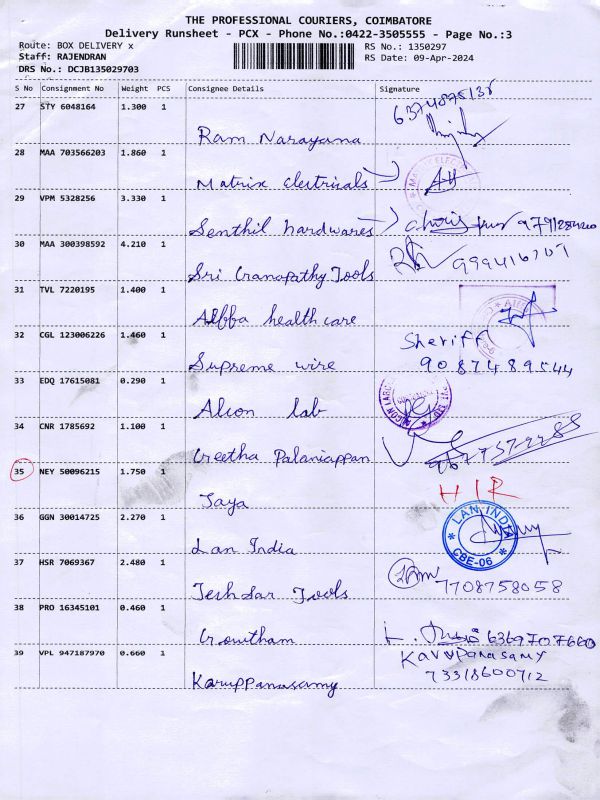 THE PROFESSIONAL COURIERS, COIMBATORE
Delivery Runsheet - PCX - Phone No.:0422-3505555 - Page No.:3
Route: BOX DELIVERY x
RS No.: 1350297
Staff: RAJENDRAN
RS Date: 09-Apr-2024
DRS No.: DCJB135029703
S No Consignment No Weight PCS Consignee Details Signature
27 STY 6048164 1.300 1
Ram Narayana
28 MAA 703566203 1.860 1
Matrix electricals
29 VPM 5328256 3.330 1
Senthil hardwares
30 MAA 300398592 4.210 1
Sri Ganapathy Tools
31 TVL 7220195 1.400 1
Alfba health care
32 CGL 123006226 1.460 1
Sheriff
9087489544
Supreme wire
33 EDQ 17615081 0.290 1
Alcon lab
34 CNR 1785692 1.100 1
Geetha Palaniappan
35 NEY 50096215 1.750 1
HIR
Jaya
36 GGN 30014725 2.270 1
LAN INDIA
CBE-06
Lan India
37 HSR 7069367 2.480 1
7708758058
Tools
38 PRO 16345101 0.460 1
6369707660
Gowtham
39 VPL 947187970 0.660 1
Karuppanasamy
73318600712
Karuppanasamy